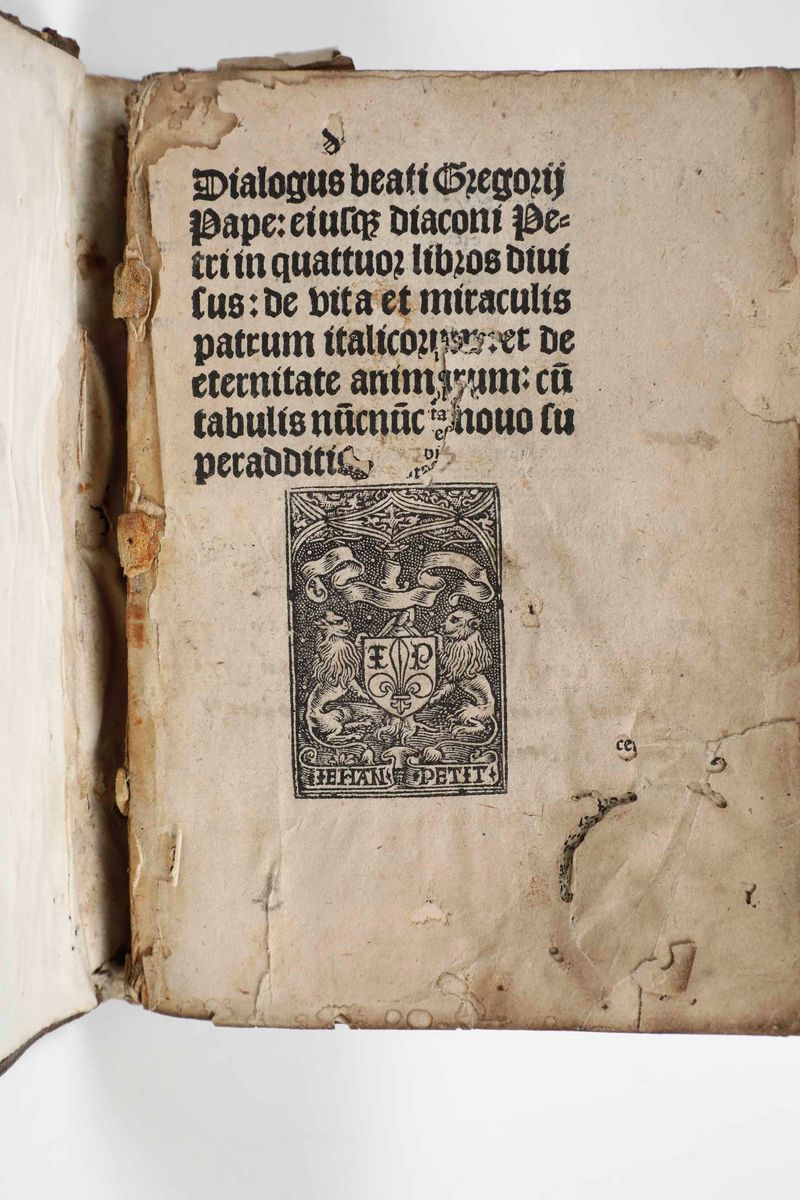 Dialogus beati Gregorij
Pape: eiusqꝫ diaconi Pe-
tri in quattuor libros diui
sus: de vita et miraculis
patrum et de
eternitate cū
tabulis nūcnūc nouo su
peradditi
I P
IEHAN PETIT
ce